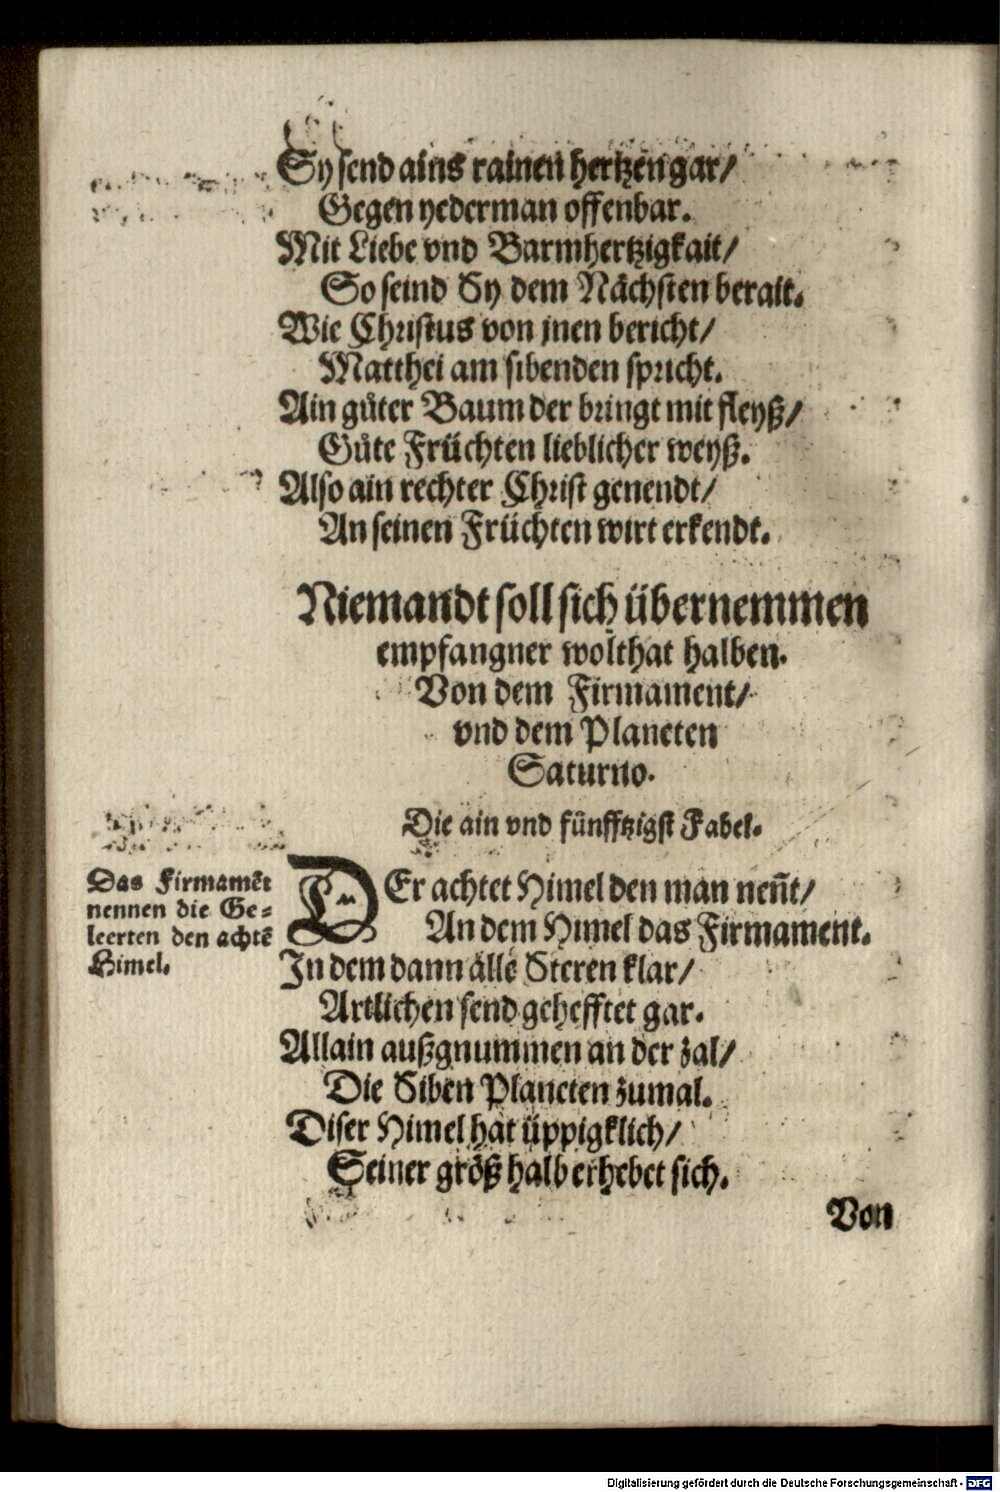 Sy send ains rainen hertzen gar/
Gegen yederman offenbar.
Mit Liebe vnd Barmhertzigkait/
So seind Sy dem Nächsten berait.
Wie Christus von jnen bericht/
Matthei am sibenden spricht.
Ain gůter Baum der bringt mit fleyß/
Gůte Früchten lieblicher weyß.
Also ain rechter Christ genendt/
An seinen Früchten wirt erkendt.
Niemandt soll sich übernemmen
empfangner wolthat halben.
Von dem Firmament/
vnd dem Planeten
Saturno.
Die ain vnd fünfftzigst Fabel.
Das Firmamēt
nennen die Ge-
leerten den achtē
Himel.
DEr achtet Himel den man neñt/
An dem Himel das Firmament.
In dem dann alle Steren klar/
Artlichen send gehefftet gar.
Allain außgnummen an der zal/
Die Siben Planeten zumal.
Diser Himel hat üppigklich/
Seiner größ halb erhebet sich.
Von
Digitalisierung gefördert durch die Deutsche Forschungsgemeinschaft - DFG